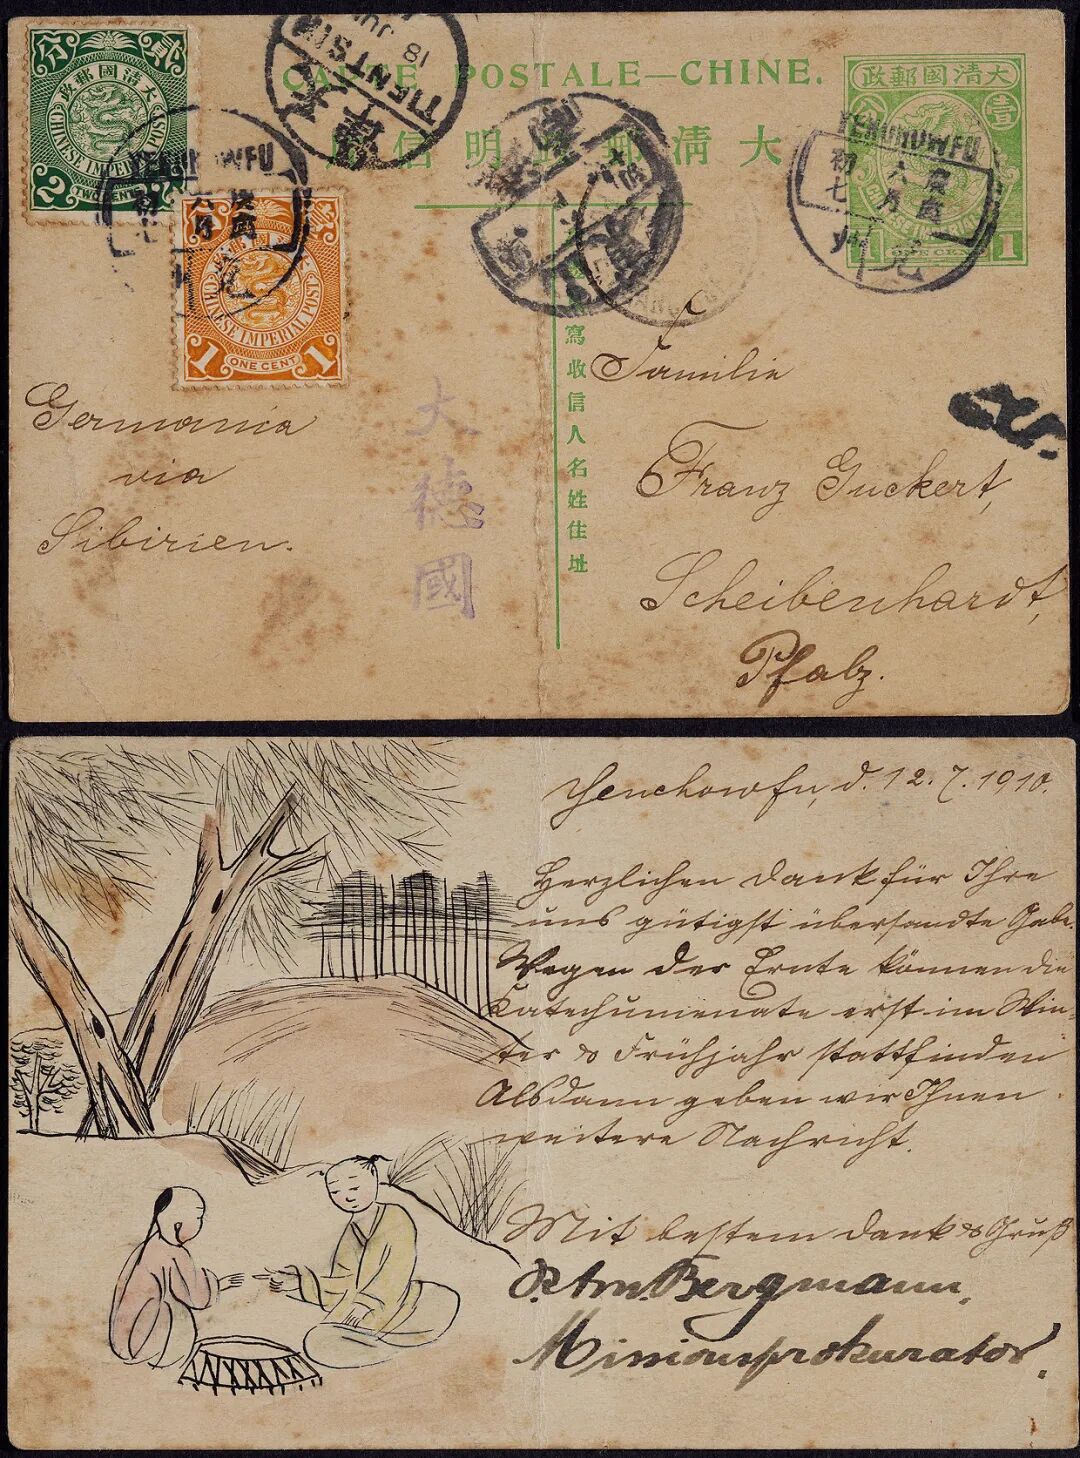 CARTE POSTALE—CHINE.
大清郵政明信片
大清國郵政
壹
1 ONE CENT 1
大清國郵政
貳
分
CHINESE IMPERIAL POST
2 TWO CENTS
CHINESE IMPERIAL POST
1 ONE CENT 1
TIENTSIN
18
天
YENCHOWFU
六月
初七
YENCHOWFU
庚戌
六月
初七
兖州
寫收信人名姓住址
大德國
Germania
via
Sibirien.
Familie
Franz Guckert,
Scheibenhardt,
Pfalz.
Yenchowfu, d. 12.7.1910.
Herzlichen Dank für Ihre
uns gütigst übersandte Gabe.
Wegen der Ernte können die
Katechumenate erst im Win-
ter & Frühjahr stattfinden
Alsdann geben wir Ihnen
weitere Nachricht.
Mit bestem Dank & Gruß
P. Am. Bergmann,
Missionsprokurator.